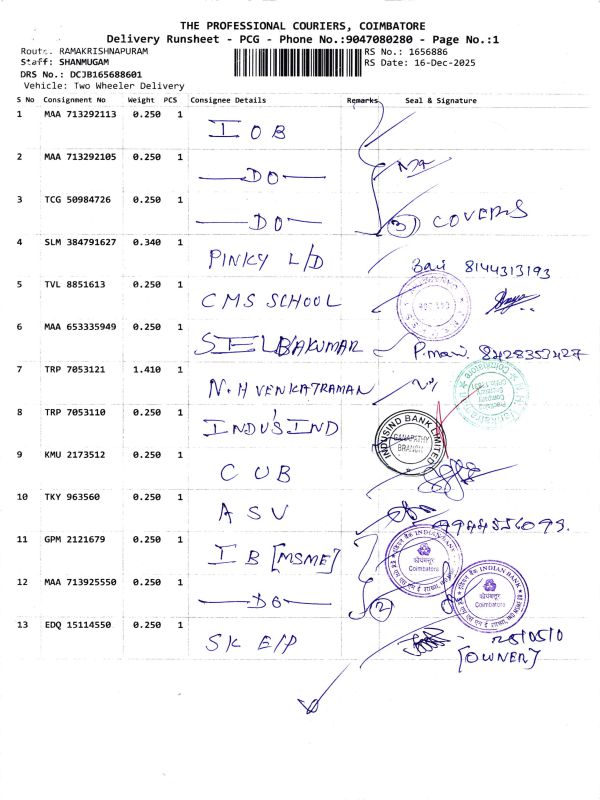 THE PROFESSIONAL COURIERS, COIMBATORE
Delivery Runsheet - PCG - Phone No.:9047080280 - Page No.:1
Route: RAMAKRISHNAPURAM RS No.: 1656886
Staff: SHANMUGAM RS Date: 16-Dec-2025
DRS No.: DCJB165688601
Vehicle: Two Wheeler Delivery
S No Consignment No Weight PCS Consignee Details Remarks Seal & Signature
1 MAA 713292113 0.250 1 IOB
2 MAA 713292105 0.250 1 DO
3 TCG 50984726 0.250 1 DO 3) COVERS
4 SLM 384791627 0.340 1 PINKY L/D 8144313193
5 TVL 8851613 0.250 1 CMS SCHOOL
6 MAA 653335949 0.250 1 SELBAKUMAR P.mani. 8428353427
7 TRP 7053121 1.410 1 N.H VENKATRAMAN
8 TRP 7053110 0.250 1 INDUSIND INDUSIND BANK LIMITED GANAPATHY BRANCH
9 KMU 2173512 0.250 1 CUB
10 TKY 963560 0.250 1 ASV 9944556093.
11 GPM 2121679 0.250 1 IB [MSME] INDIAN BANK कोयम्बतूर Coimbatore
12 MAA 713925550 0.250 1 DO 2 INDIAN BANK कोयम्बतूर Coimbatore
13 EDQ 15114550 0.250 1 SK E/P
[OWNER]